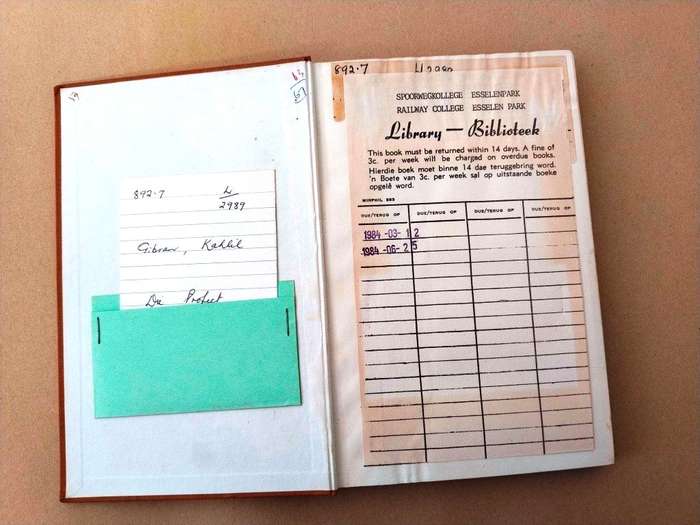 63
67
892·7
L
2989
Gibran, Kahlil
Die Profeet
892·7
SPOORWEGKOLLEGE ESSELENPARK
RAILWAY COLLEGE ESSELEN PARK
Library — Biblioteek
This book must be returned within 14 days. A fine of
3c. per week will be charged on overdue books.
Hierdie boek moet binne 14 dae teruggebring word.
'n Boete van 3c. per week sal op uitstaande boeke
opgelê word.
DUE/TERUG OP DUE/TERUG OP DUE/TERUG OP DUE/TERUG OP
1984 -03- 1 2
1984 -06- 2 5